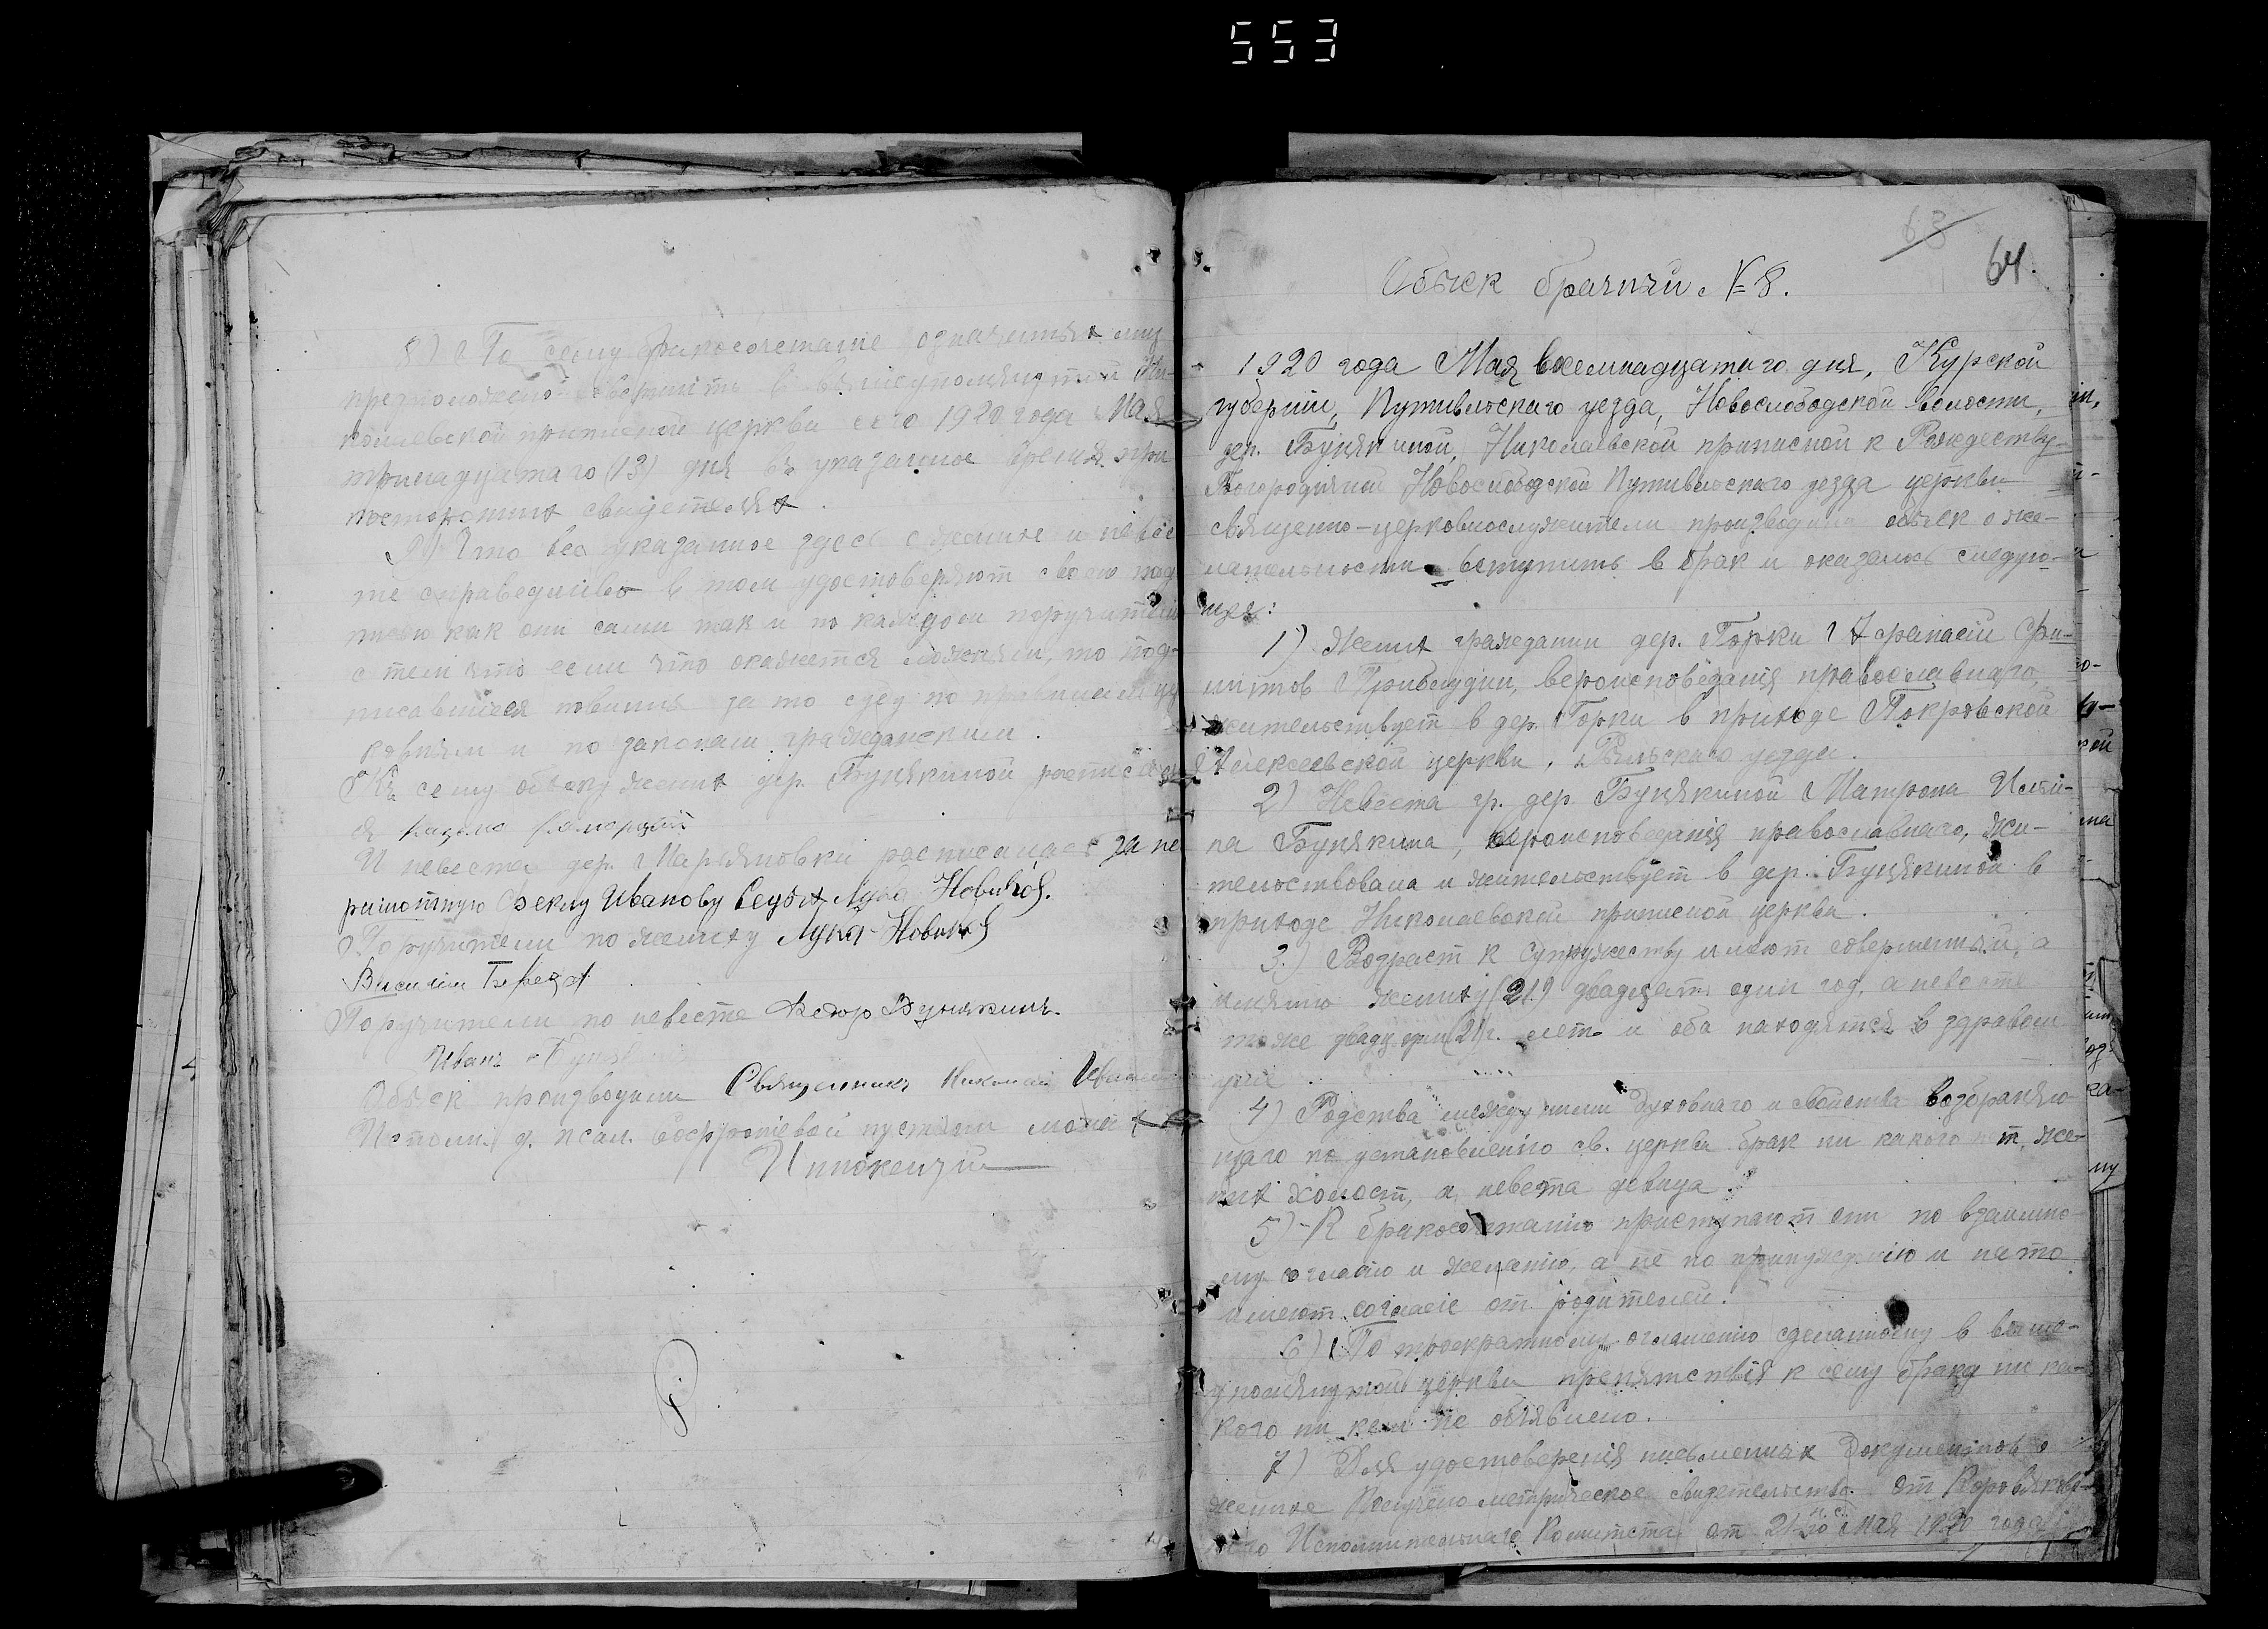 553
8) По сему бракосочетание означенных лиц
предположено совершить в вышеупомянутой Ни-
колаевской приписной церкви сего 1920 года Мая
тринадцатаго (13) дня въ указанное время при
посторонних свидетелях.
9) Что все указанное здесь о женихе и невес
те справедливо в том удостоверяют своею под
писью как они сами так и по каждом поручители
с тем что если что окажется ложным, то под-
писавшиеся повинны за то суду по правилам це
ковным и по законам гражданским.
Къ сему обыску жених дер. Бунякиной росписался
И невеста дер. Марьяновки росписалась за не
грамотную Феклу Иванову Лука Новиков.
Поручители по жениху Лука Новиков
Василий Береза
Поручители по невесте Федор Бунякинъ.
Иванъ
Обыск производили Священникъ Николай
Исполн. д. псал. Софрониевой пустыни монах
Иннокентий
63
64.
Обыск брачный № 8.
1920 года Мая восемнадцатаго дня, Курской
губернии, Путивльскаго уезда, Новослободской волости,
дер. Бунякиной, Николаевской приписной к Рождеству-
Богородичной Новослободской Путивльскаго уезда церкви
священно-церковнослужители производили обыск о же-
лательности вступить в брак и оказалось следую-
щее:
1) Жених гражданин дер. Горки Афанасий Фи-
липов Приблудин, вероисповеданія православнаго,
жительствует в дер. Горки в приходе Покровской
Алексеевской церкви, Рыльскаго уезда.
2) Невеста гр. дер. Бунякиной Матрона
на Бунякина, вероисповеданія православнаго, жи-
тельствовала и жительствует в дер. Бунякиной в
приходе Николаевской приписной церкви.
3.) Возраст к супружеству имеют совершенный, а
именно жениху (21) двадцать один год, а невесте
тоже двадц. один (21) г. лет и оба находятся в здравом
уме.
4) Родства между ними духовнаго и свойства возбраняю-
щаго по установлению св. церкви брак ни какого нет, же-
них холост, а невеста девица.
5) К бракосочетанию приступают они по взаимно-
му согласию и желанию, а не по принуждению и на то
имеют согласие от родителей.
6) По троекратному оглашению сделанному в выше-
упомянутой церкви препятствія к сему браку ни ка-
кого ни кем не объявлено.
7) Для удостоверенія письменных документов о
женихе получено метрическое свидетельство от Коровяков-
скаго Исполнительнаго Комитета от 21-го мая 1920 года